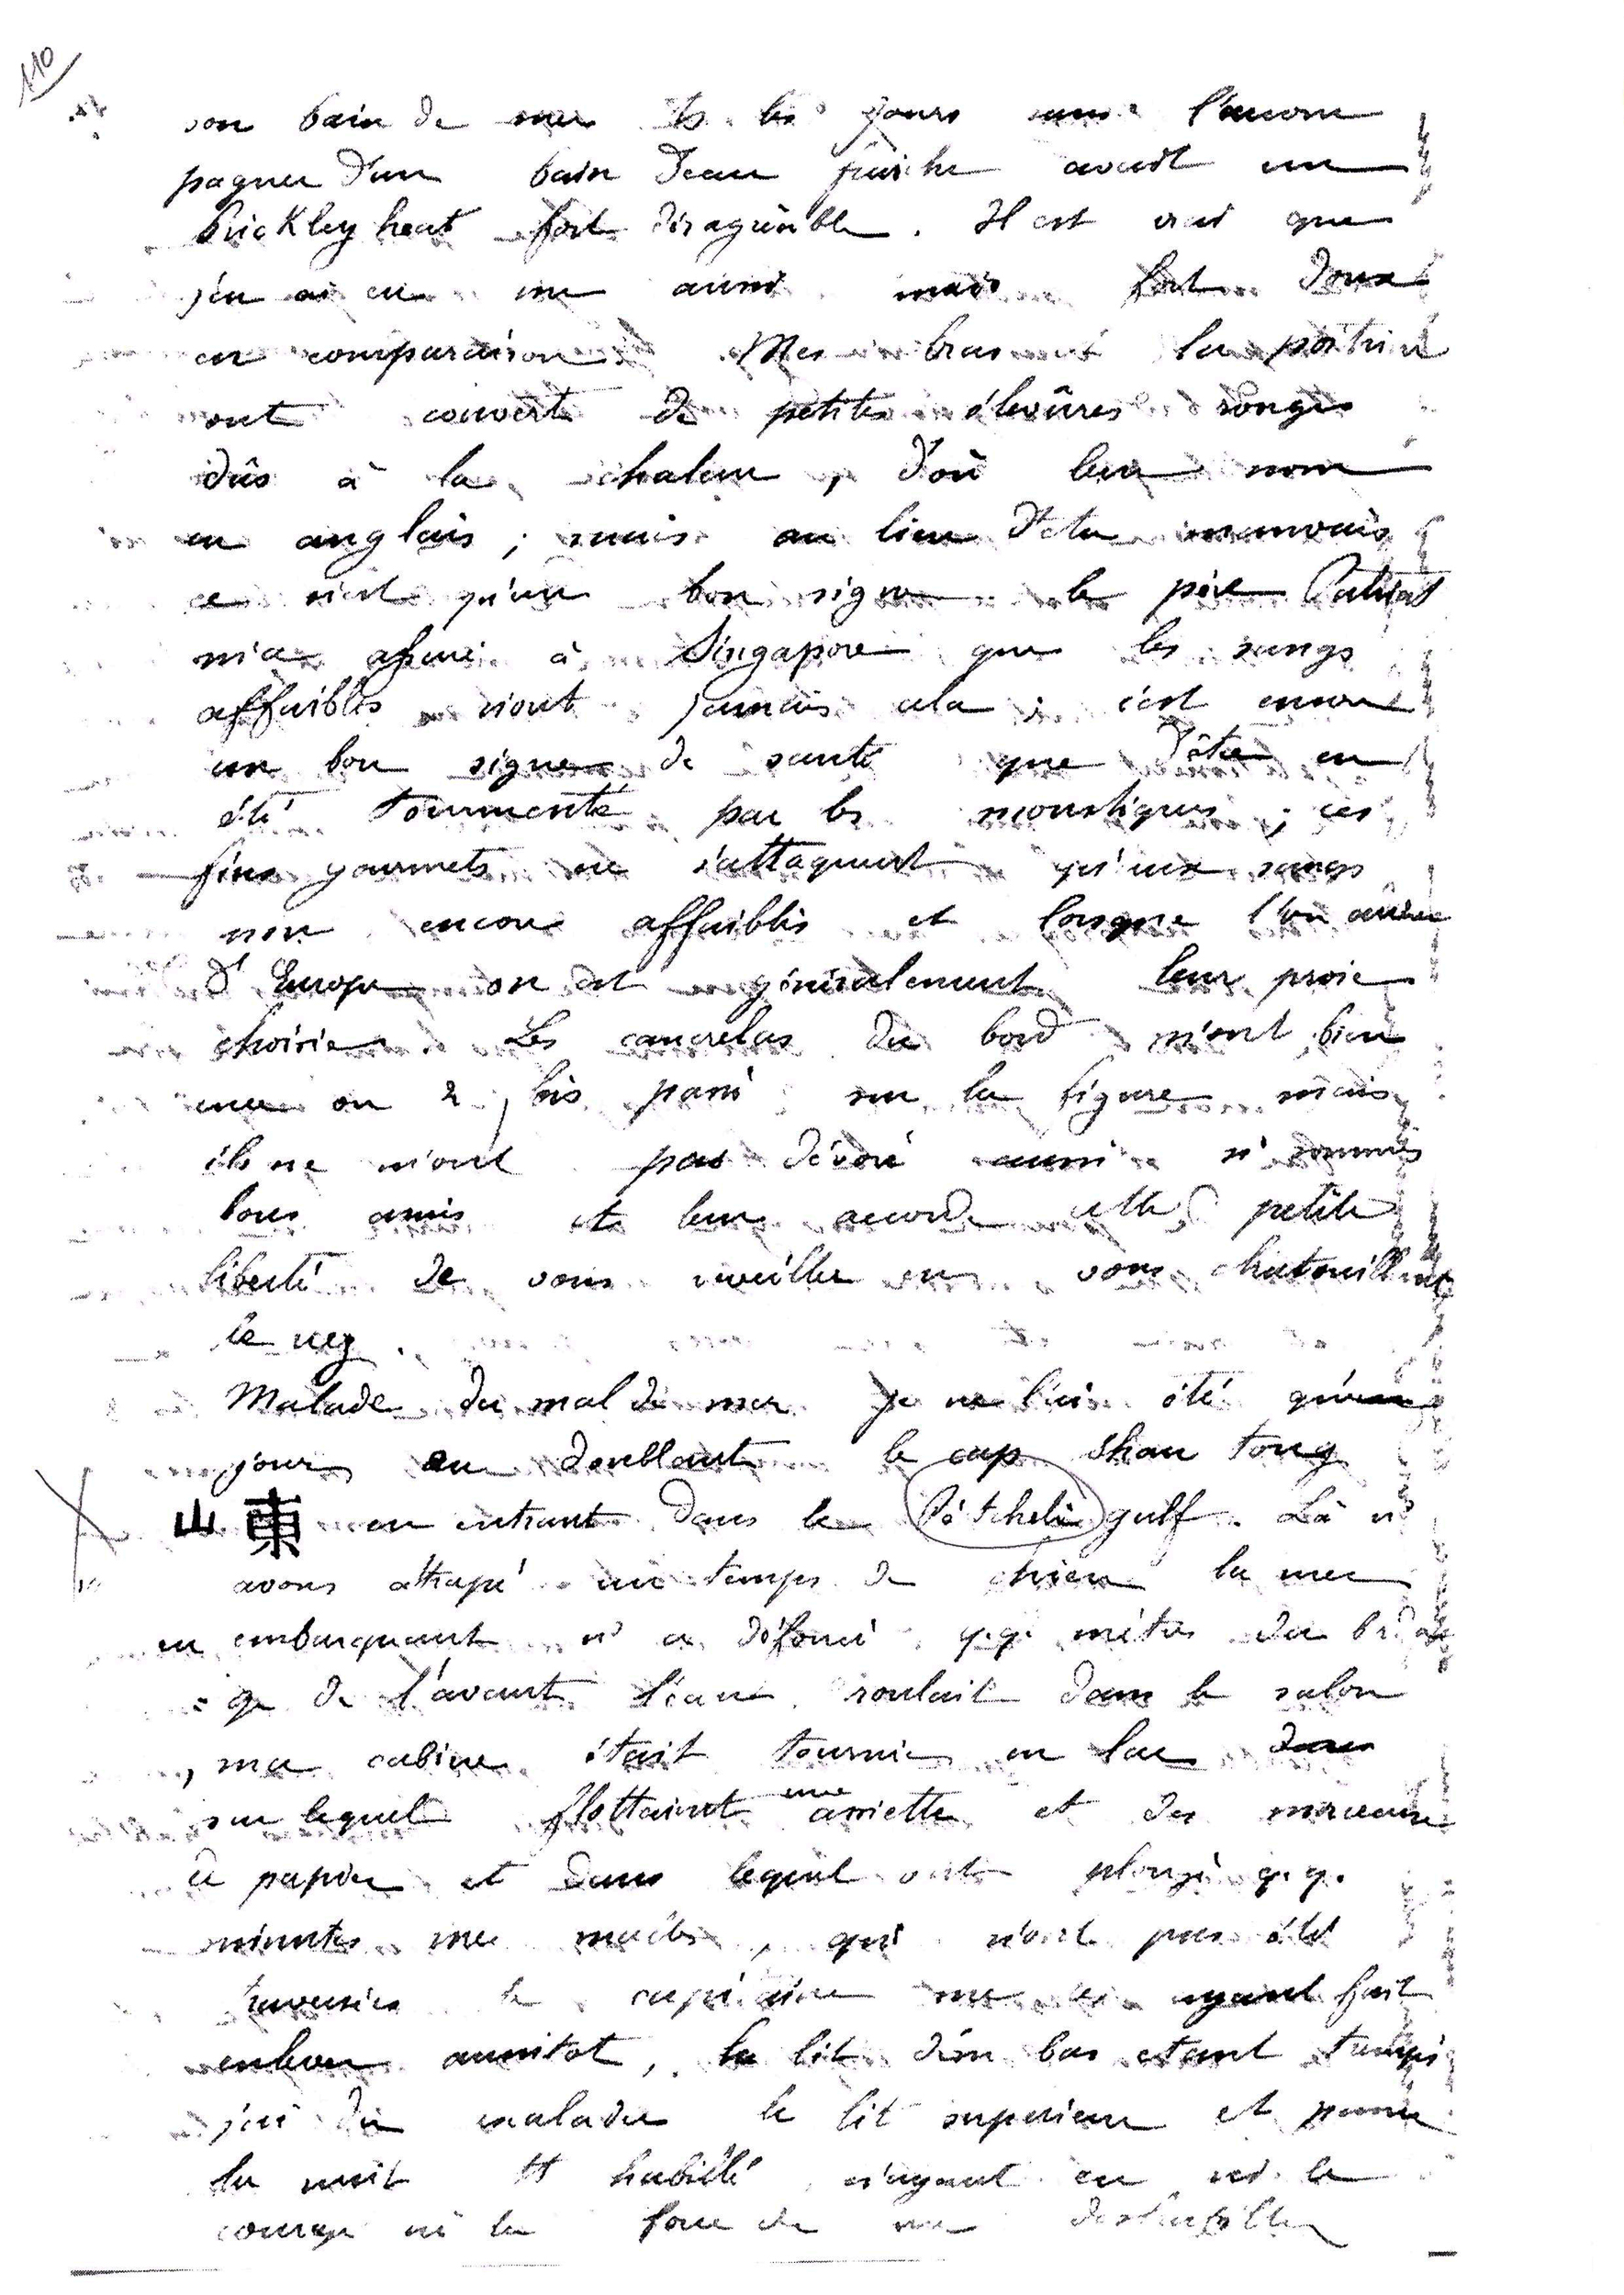 110
son bain de mer ts les jours sans l'accom
pagner d'un bain d'eau fraîche avait un
Prickley heat fort désagréable. Il est vrai que
j'en ai eu un aussi mais fort doux
en comparaison Mes bras et la poitrine
ont couvert de petites élevûres rouges
dûs à la chaleur, d'où leur nom
en anglais ; mais au lieu d'etre mauvais
ce n'est qu'un bon signe le père Patriat
m'a assuré à Singapore que les sangs
affaiblis n'ont jamais cela ; c'est encore
un bon signe de santé que d'être en
été tourmenté par les moustiques ; ces
fins gourmets ne s'attaquent qu'aux sangs
non encore affaiblis et lorsque l'on arrive
d'Europe on est généralement leur proie
choisie. Les cancrelas du bord m'ont bien
une ou 2 fois passé sur la figure mais
ils ne m'ont pas dévoré aussi ns sommes
bons amis et leur accorde cette petite
liberté de vous reveiller en vous chatouillant
le nez.
Malade du mal de mer je ne l'ai été qu'un
jour en doublant le cap Shan tong
山東 en entrant dans le Pétcheli gulf. Là ns
avons attrapé un temps de chien la mer
en embarquant ns a défoncé qq. mètres du
de l'avant l'eau roulait dans le salon
, ma cabine était tournée en lac dans
sur lequel flottaient une assiette et des morceaux
de papier et dans lequel ont plongé q.q.
minutes mes malles, qui n'ont pas été
traversées le capitaine me les ayant fait
enlever aussitot, le lit d'en bas etant trempé
j'ai dû escalader le lit superieur et passer
la nuit tt habillé n'ayant eu ni le
courage ni la force de me deshabiller